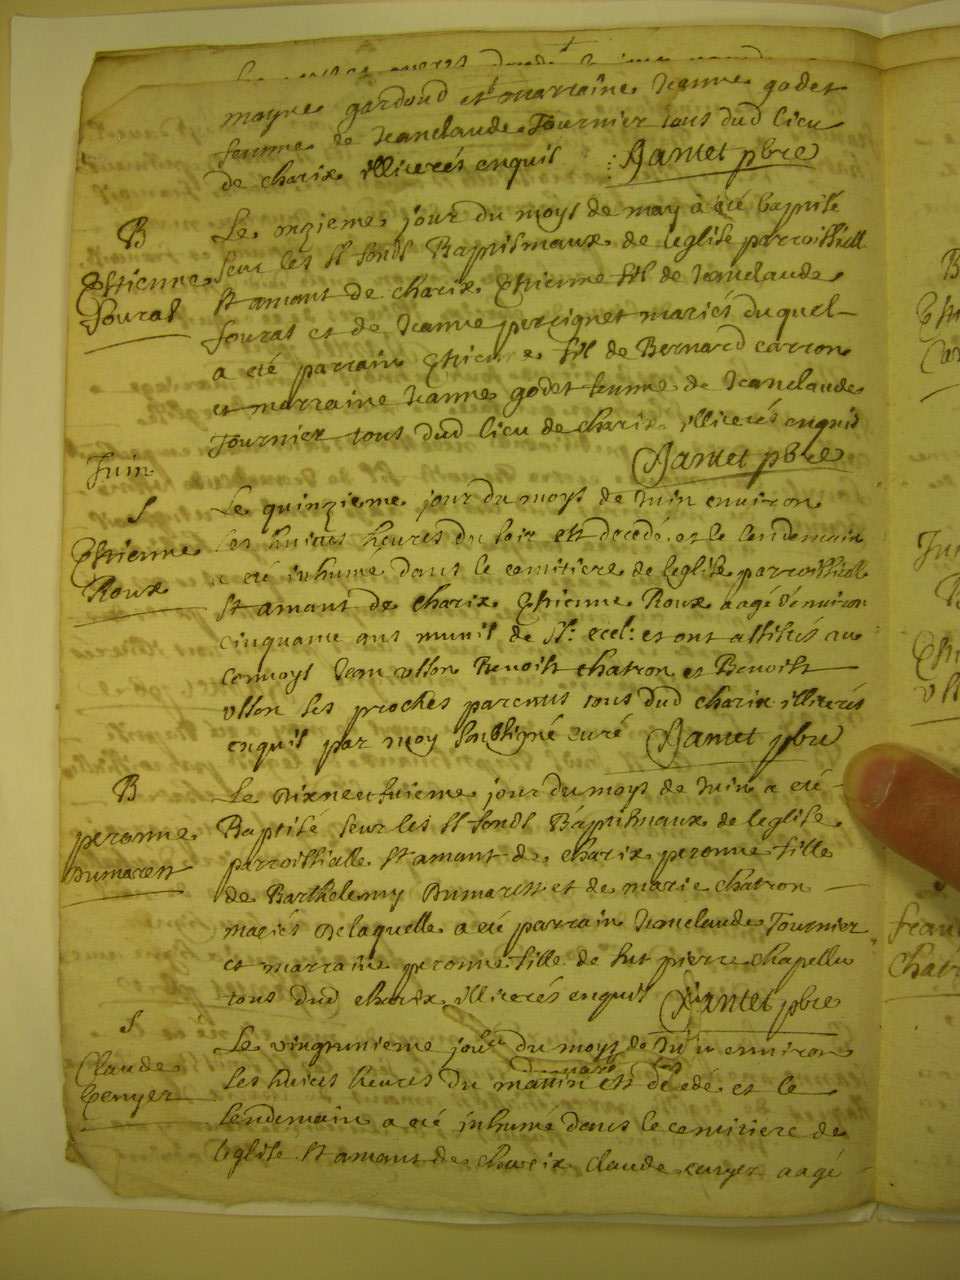 mayne gardoud et marraine Jeanne godet
femme de Jeanclaude Tournier tous dud lieu
de charix illiterés enquis Jantet pbre
B
Estienne
Sourat
Le onzieme jour du moys de may à eté baptisé
seur les st fonds Baptismaux de leglise parroissiall
st amant de charix Estienne fils de Jeanclaude
sourat et de Jeanne perrignet mariés duquel
a eté parrain Estienne fils de Bernard carron
et marraine Jeanne godet femme de Jeanclaude
Tournier tous dud lieu de charix illiterés enquis
Jantet pbre
Juin
S
Estienne
Roux
Le quinzieme jour du moys de Juin environ
les huict heures du soir est decedé et le lendemain
a eté inhumé dans le cemitiere de leglise parroissiall
st amant de charix Estienne Roux aagé d'environ
cinquante ans munis de st: eccl: et ont assistés au
convoys Jean Benoist chatron et Benoist
ses proches parents tous dud charix illiterés
enquis par moy soubsigné curé Jantet pbre
B
peronne
Dumarest
Le dixneufvieme jour du moys de Juin a eté
Baptisé seur les st fonds Baptismaux de leglise
parroissialle st amant de charix peronne fille
de Barthelemy Dumarest et de marie chatron
mariés de laquelle a eté parrain Jeanclaude Tournier
et marraine peronne fille de fut pierre chapellu
tous dud charix illiterés enquis Jantet pbre
S
Claude
Le vingtunieme jour du moys de Juin environ
les huict heures du mattin est decedé et le
lendemain a eté inhumé dans le cemitiere de
leglise st amant de charix claude aagé
B
Juin
B